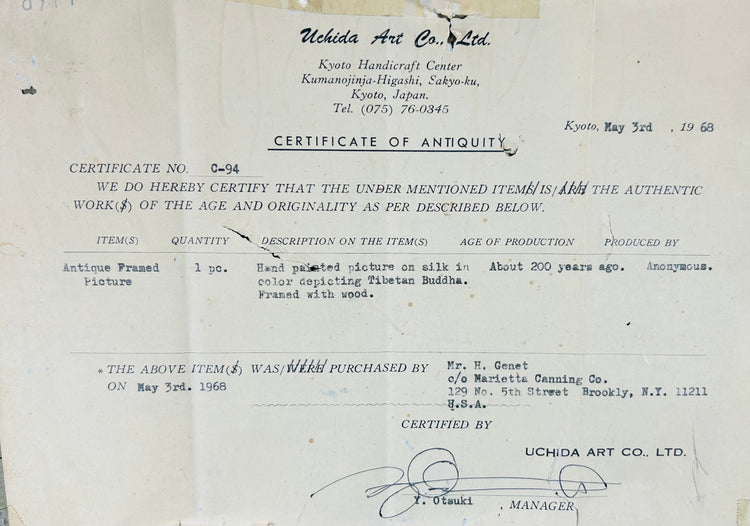 Uchida Art Co., Ltd.
Kyoto Handicraft Center
Kumanojinja-Higashi, Sakyo-ku,
Kyoto, Japan.
Tel. (075) 76-0345
Kyoto, May 3rd , 1968
CERTIFICATE OF ANTIQUITY
CERTIFICATE NO. C-94
WE DO HEREBY CERTIFY THAT THE UNDER MENTIONED ITEMS/IS/ARE THE AUTHENTIC
WORK(S) OF THE AGE AND ORIGINALITY AS PER DESCRIBED BELOW.
ITEM(S) QUANTITY DESCRIPTION ON THE ITEM(S) AGE OF PRODUCTION PRODUCED BY
Antique Framed 1 pc. Hand painted picture on silk in About 200 years ago. Anonymous.
Picture color depicting Tibetan Buddha.
Framed with wood.
* THE ABOVE ITEM(S) WAS/WERE PURCHASED BY Mr. H. Genet
ON May 3rd. 1968 c/o Marietta Canning Co.
129 No. 5th Street Brookly, N.Y. 11211
U.S.A.
CERTIFIED BY
UCHIDA ART CO., LTD.
Y. Otsuki , MANAGER